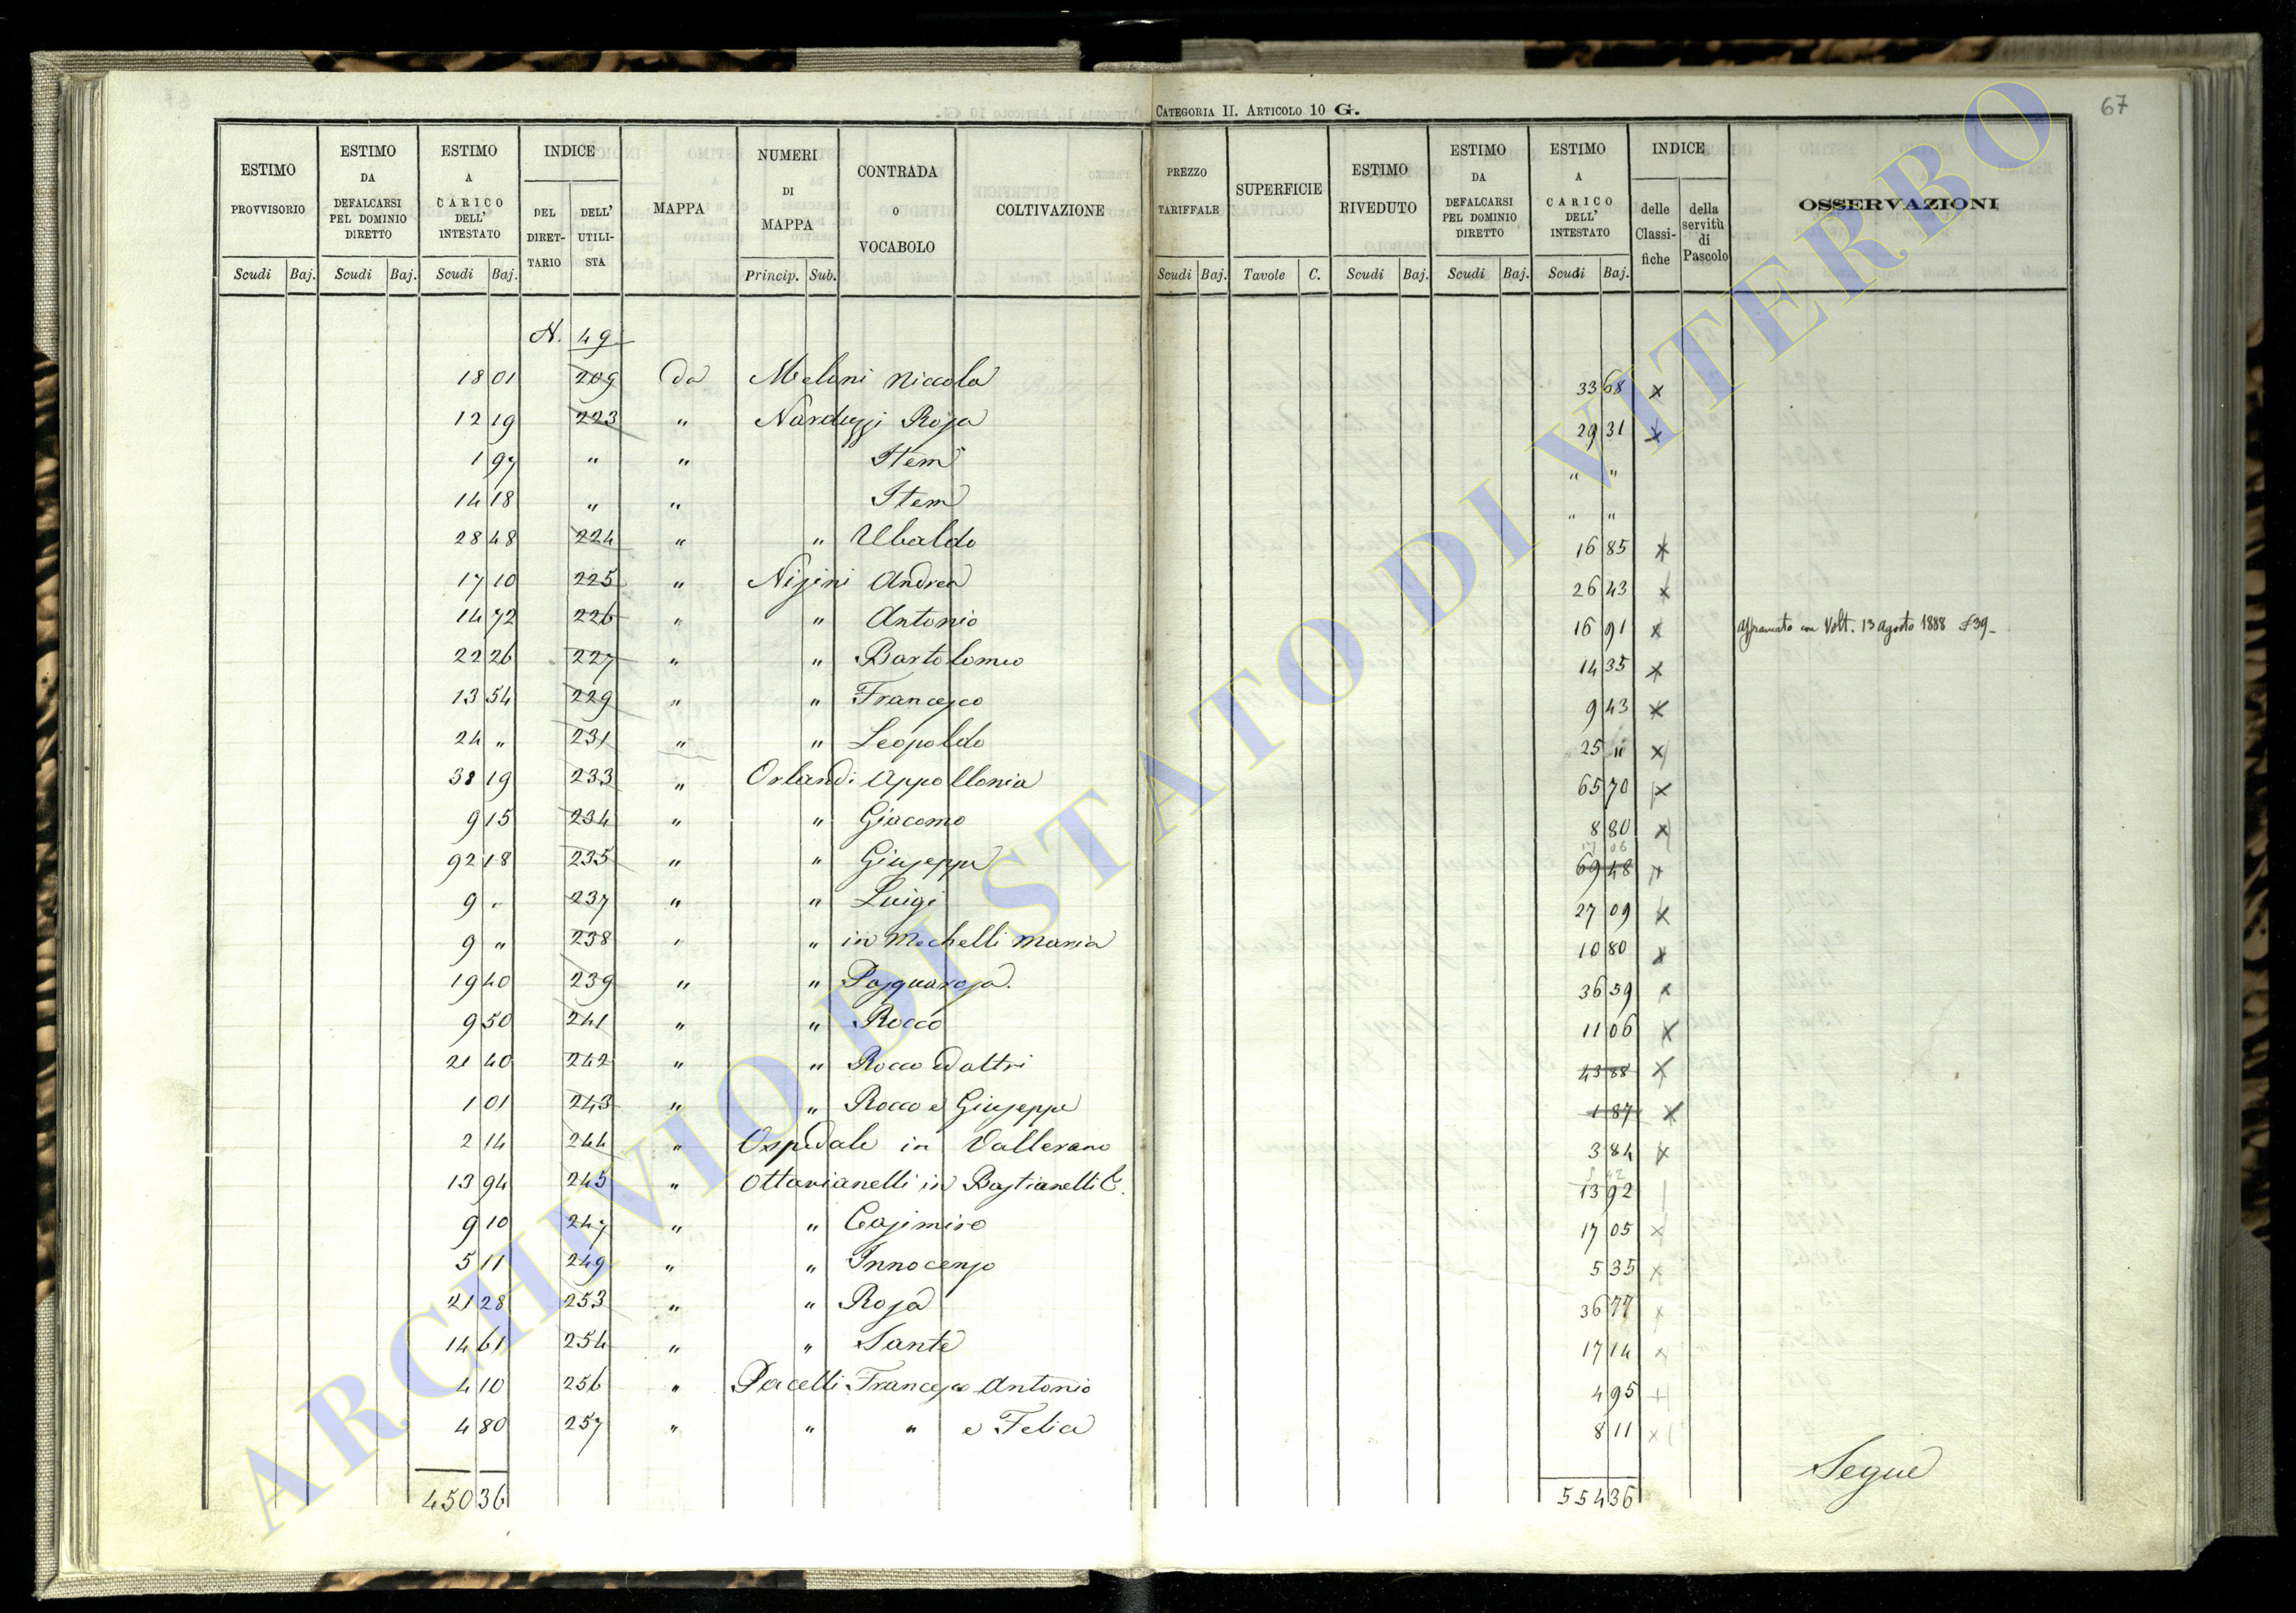 CATEGORIA II. ARTICOLO 10 G.
67
ESTIMO PROVVISORIO
ESTIMO DA DEFALCARSI PEL DOMINIO DIRETTO
ESTIMO A CARICO DELL' INTESTATO
INDICE
DEL DIRET-TARIO
DELL' UTILI-STA
MAPPA
NUMERI DI MAPPA
CONTRADA O VOCABOLO
COLTIVAZIONE
PREZZO TARIFFALE
SUPERFICIE
ESTIMO RIVEDUTO
ESTIMO DA DEFALCARSI PEL DOMINIO DIRETTO
ESTIMO A CARICO DELL' INTESTATO
INDICE
delle Classi-fiche
della servitù di Pascolo
OSSERVAZIONI
Scudi Baj. Scudi Baj. Scudi Baj. Princip. Sub. Scudi Baj. Tavole C. Scudi Baj. Scudi Baj. Scudi Baj.
N. 49
18 01 209 Da Meloni Niccola 33 68 x
12 19 223 " Narduzzi Rosa 29 31 x
1 97 " " Item " "
14 18 " " Item " "
28 48 224 " " Ubaldo 16 85 x
17 10 225 " Nisini Andrea 26 43 x
14 72 226 " " Antonio 16 91 x Affrancato con Volt. 13 Agosto 1888 £39_
22 26 227 " " Bartolomeo 14 35 x
13 54 229 " " Francesco 9 43 x
24 " 231 " " Leopoldo 25 " x
38 19 233 " Orlandi Appollonia 65 70 x
9 15 234 " " Giacomo 8 80 x
92 18 235 " " Giuseppe 69 48 x
9 " 237 " " Luigi 27 09 x
9 " 238 " " in Mechelli Maria 10 80 x
19 40 239 " " Pasquarosa. 36 59 x
9 50 241 " " Rocco 11 06 x
21 40 242 " " Rocco ed altri 43 88 x
1 01 243 " " Rocco e Giuseppe 1 87 x
2 14 244 " Ospedale in Vallerano 3 84 x
13 94 245 " Ottavianelli in Bastianelli C. 13 92
9 10 247 " " Casimiro 17 05 x
5 11 249 " " Innocenzo 5 35 x
21 28 253 " " Rosa 36 77 x
14 61 254 " " Sante 17 14 x
4 10 256 " Pacelli Francesco Antonio 4 95 x
4 80 257 " " " e Felice 8 11 x
Segue
450 36 554 36
ARCHIVIO DI STATO DI VITERBO